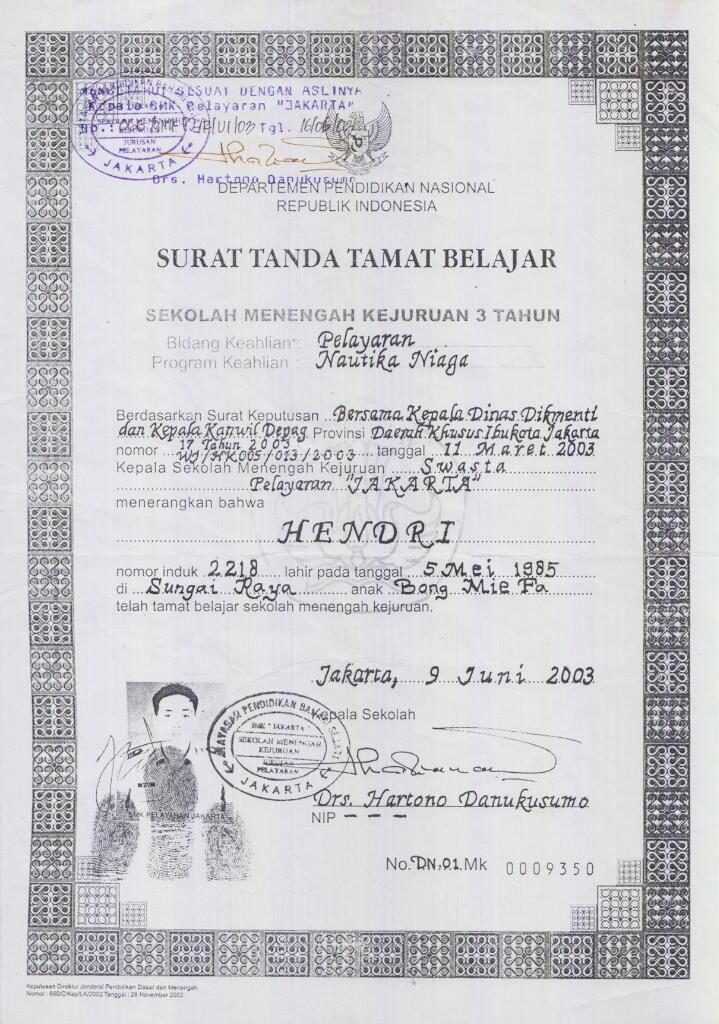 MENGETAHUI SESUAI DENGAN ASLINYA
Kepala SMK Pelayaran "JAKARTA"
Tgl. 16/06/03
Drs. Hartono Danukusumo
SEKOLAH MENENGAH
JURUSAN
PELAYARAN
JAKARTA
DEPARTEMEN PENDIDIKAN NASIONAL
REPUBLIK INDONESIA
SURAT TANDA TAMAT BELAJAR
SEKOLAH MENENGAH KEJURUAN 3 TAHUN
Bidang Keahlian : Pelayaran
Program Keahlian : Nautika Niaga
Berdasarkan Surat Keputusan Bersama Kepala Dinas Dikmenti
dan Kepala Kanwil Depag Provinsi Daerah Khusus Ibukota Jakarta
nomor 17 Tahun 2003 WJ/HK005/013/2003 tanggal 11 Maret 2003
Kepala Sekolah Menengah Kejuruan Swasta
Pelayaran "JAKARTA"
menerangkan bahwa
HENDRI
nomor induk 2218 lahir pada tanggal 5 Mei 1985
di Sungai Raya anak Bong Mie Fa
telah tamat belajar sekolah menengah kejuruan.
Jakarta, 9 Juni 2003
Kepala Sekolah
YAYASAN PENDIDIKAN
SMK "JAKARTA"
SEKOLAH MENENGAH
KEJURUAN
JURUSAN
PELAYARAN
JAKARTA
Drs. Hartono Danukusumo
NIP - - -
SMK PELAYARAN JAKARTA
No. DN.01.Mk 0009350
Keputusan Direktur Jenderal Pendidikan Dasar dan Menengah
Tanggal : 28 November 2002